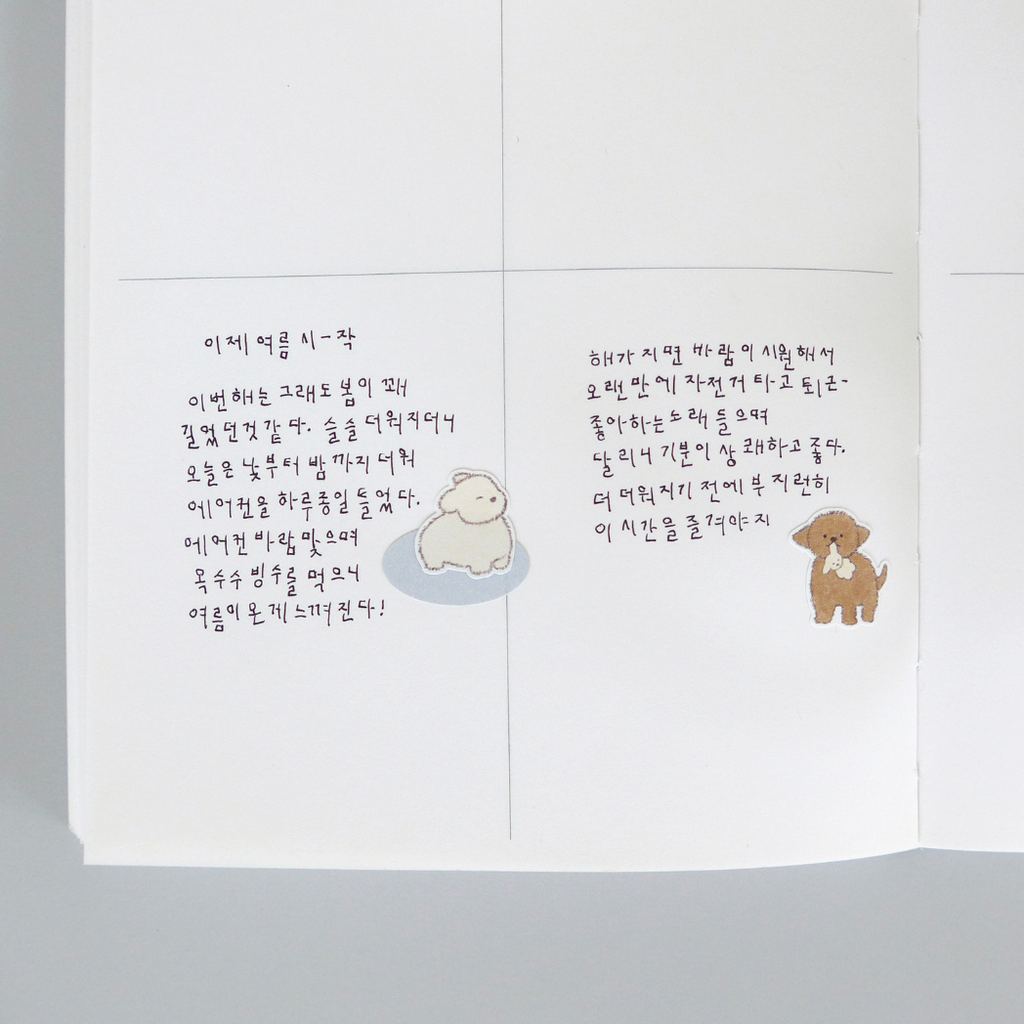 이제 여름 시-작
이번해는 그래도 봄이 꽤
길었던것 같다. 슬슬 더워지더니
오늘은 낮부터 밤까지 더워
에어컨을 하루종일 틀었다.
에어컨 바람 맞으며
옥수수 빙수를 먹으니
여름이 온게 느껴진다!
해가 지면 바람이 시원해서
오랜만에 자전거 타고 퇴근-
좋아하는 노래 들으며
달리니 기분이 상쾌하고 좋다.
더 더워지기 전에 부지런히
이 시간을 즐겨야지